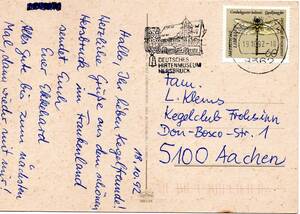 18.10.92
Hallo, Ihr lieben Kegelfreunde!
Herzliche Grüße aus dem schönen
Hersbruck im Frankenland
sendet Euch
Euer Ekkehard
Alles Gute bis zum nächsten
Mal, dann wieder mit mir!
DEUTSCHES
HIRTENMUSEUM
HERSBRUCK
19.10.92
Fam.
L. Klems
Kegelclub Frohsinn
Don-Bosco-Str. 1
5100 Aachen